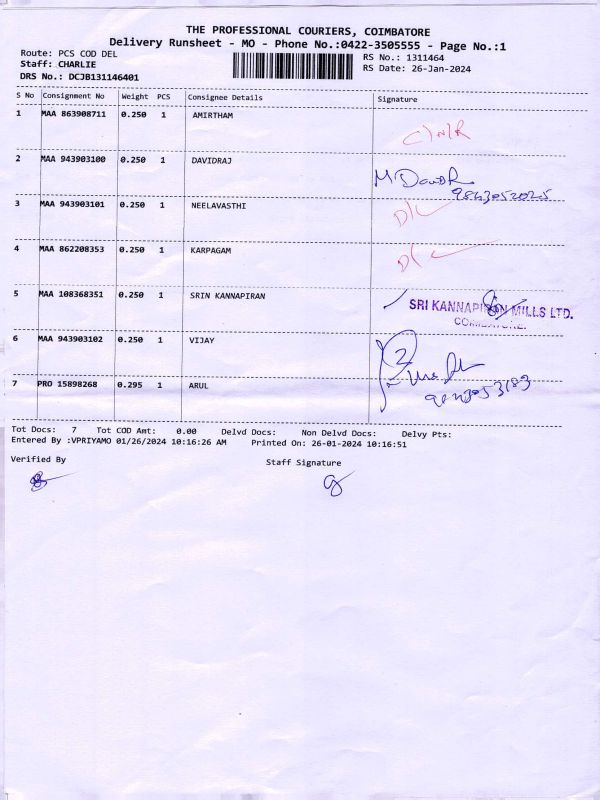 THE PROFESSIONAL COURIERS, COIMBATORE
Delivery Runsheet - MO - Phone No.:0422-3505555 - Page No.:1
Route: PCS COD DEL RS No.: 1311464
Staff: CHARLIE RS Date: 26-Jan-2024
DRS No.: DCJB131146401
S No Consignment No Weight PCS Consignee Details Signature
1 MAA 863908711 0.250 1 AMIRTHAM
C/N/R
2 MAA 943903100 0.250 1 DAVIDRAJ
M DavidR
9843052025
3 MAA 943903101 0.250 1 NEELAVASTHI
D/L
4 MAA 862208353 0.250 1 KARPAGAM
D/L
5 MAA 108368351 0.250 1 SRIN KANNAPIRAN
SRI KANNAPIRAN MILLS LTD.
COIMBATORE.
6 MAA 943903102 0.250 1 VIJAY
7 PRO 15898268 0.295 1 ARUL
Tot Docs: 7 Tot COD Amt: 0.00 Delvd Docs: Non Delvd Docs: Delvy Pts:
Entered By :VPRIYAMO 01/26/2024 10:16:26 AM Printed On: 26-01-2024 10:16:51
Verified By Staff Signature